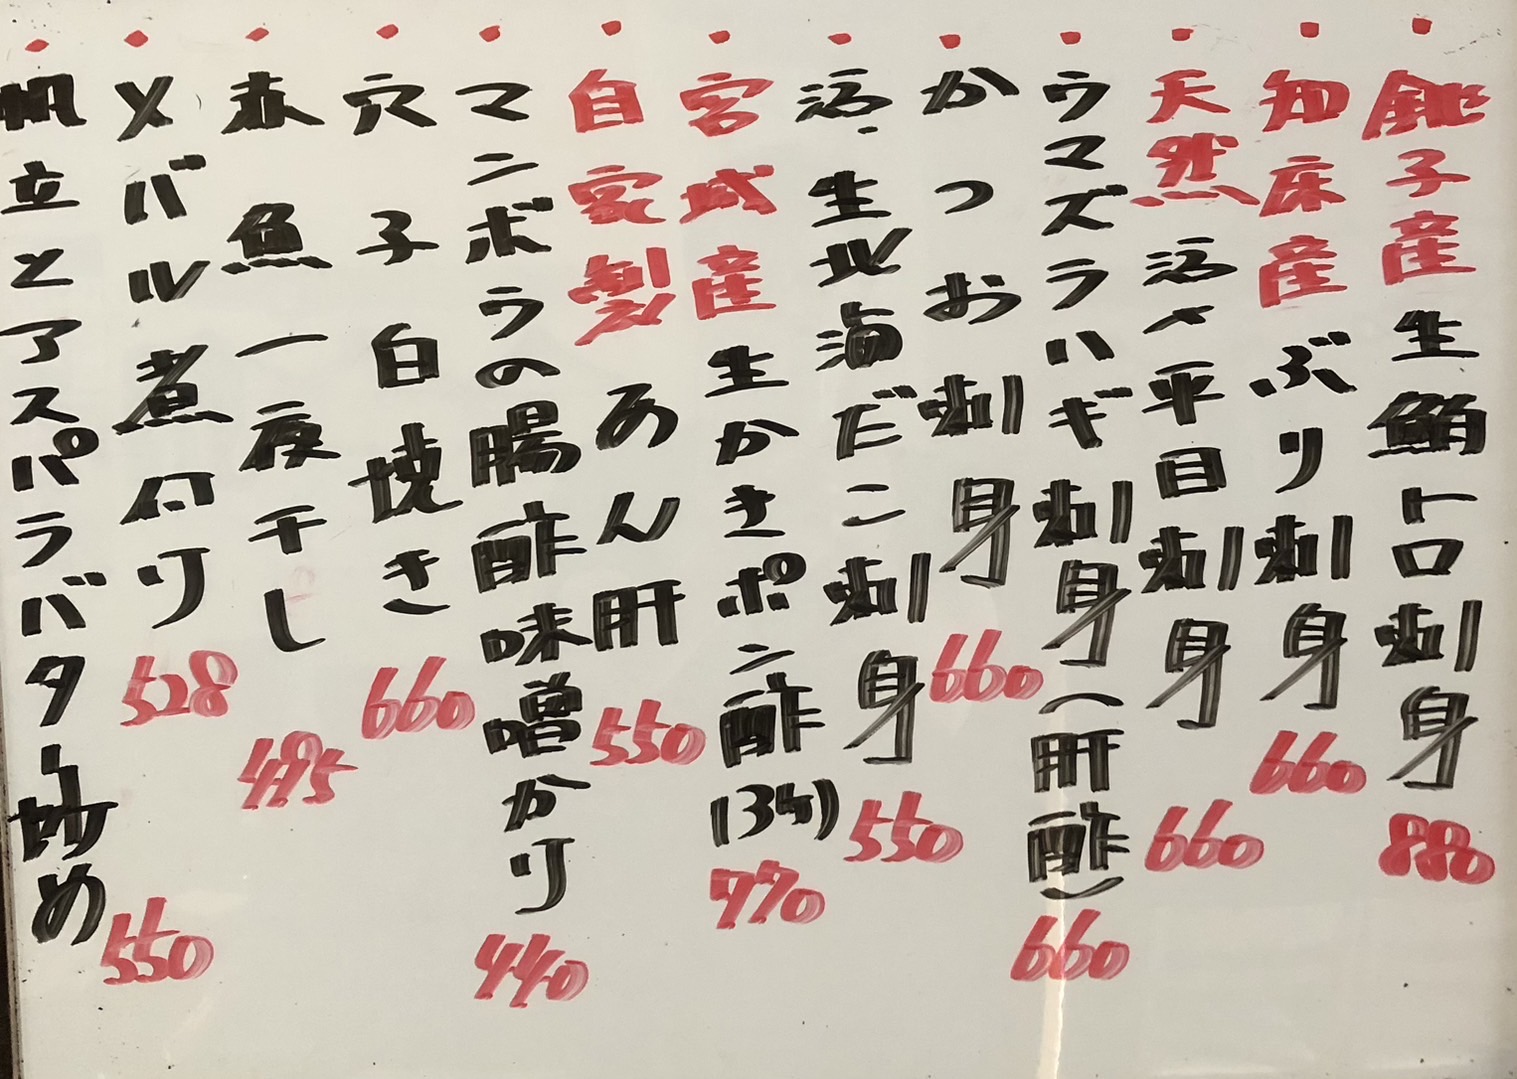 銚子産生鮪トロ刺身 880
知床産ぶり刺身 660
天然活〆平目刺身 660
ウマズラハギ刺身(肝酢) 660
かつお刺身 660
活・生北海だこ刺身 550
宮城産生かきポン酢(3ケ) 770
自家製あん肝 550
マンボウの腸酢味噌かけ 440
穴子白焼き 660
赤魚一夜干し 495
メバル煮付け 528
帆立とアスパラバター炒め 550